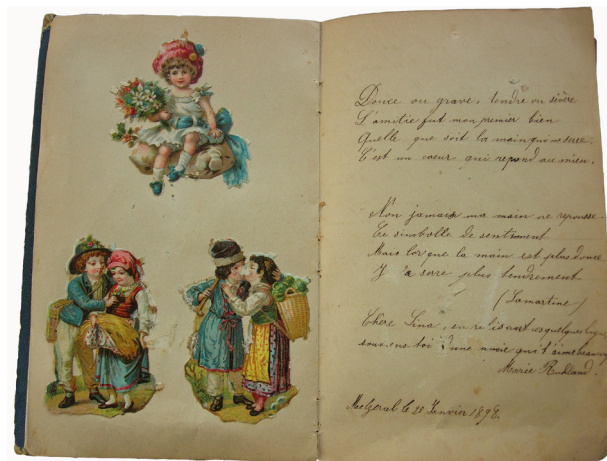 Douce ou grave, tendre ou sévère
L'amitié fut mon premier bien
Quelle que soit la main qui me serre
C'est un coeur qui repond au mien.
Non jamais ma main ne repousse
Ce simbolle de sentiment
Mais lorque la main est plus douce
J' la serre plus tendrement
(Lamartine)
Chere Lina, en relisant ces quelques
souviens toi d'une amie qui t'aime beaucoup
Marie Ruhland.
le 25 Janvier 189